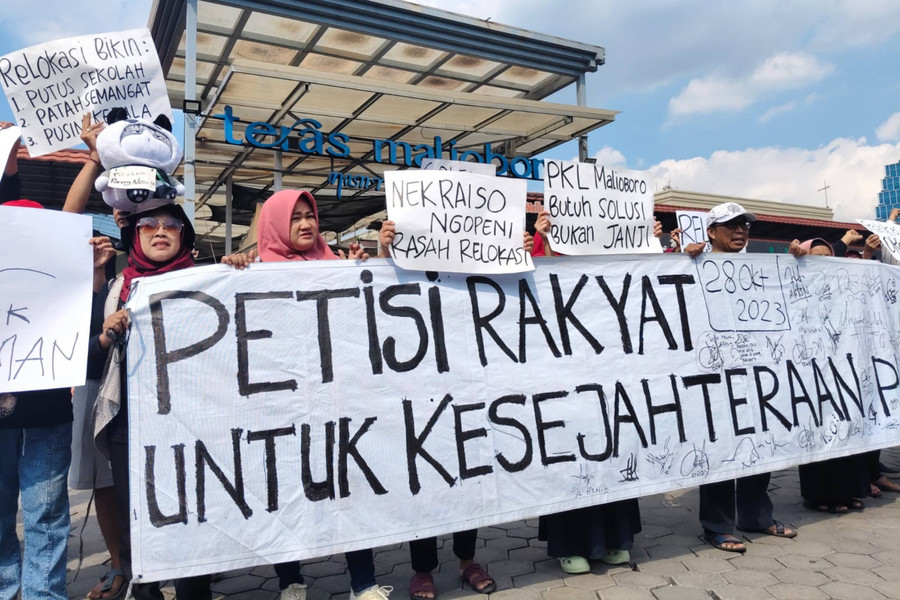 Relokasi Bikin:
1. PUTUS SEKOLAH
2. PATAH SEMANGAT
3. PUSING
teras malioboro
NEKRAISO
NGOPENI
RASAH RELOKASI
PKL MALIOBORO
BUTUH SOLUSI
BUKAN JANJI
PETISI RAKYAT
28 OKT
2023
UNTUK KESEJAHTERAAN P